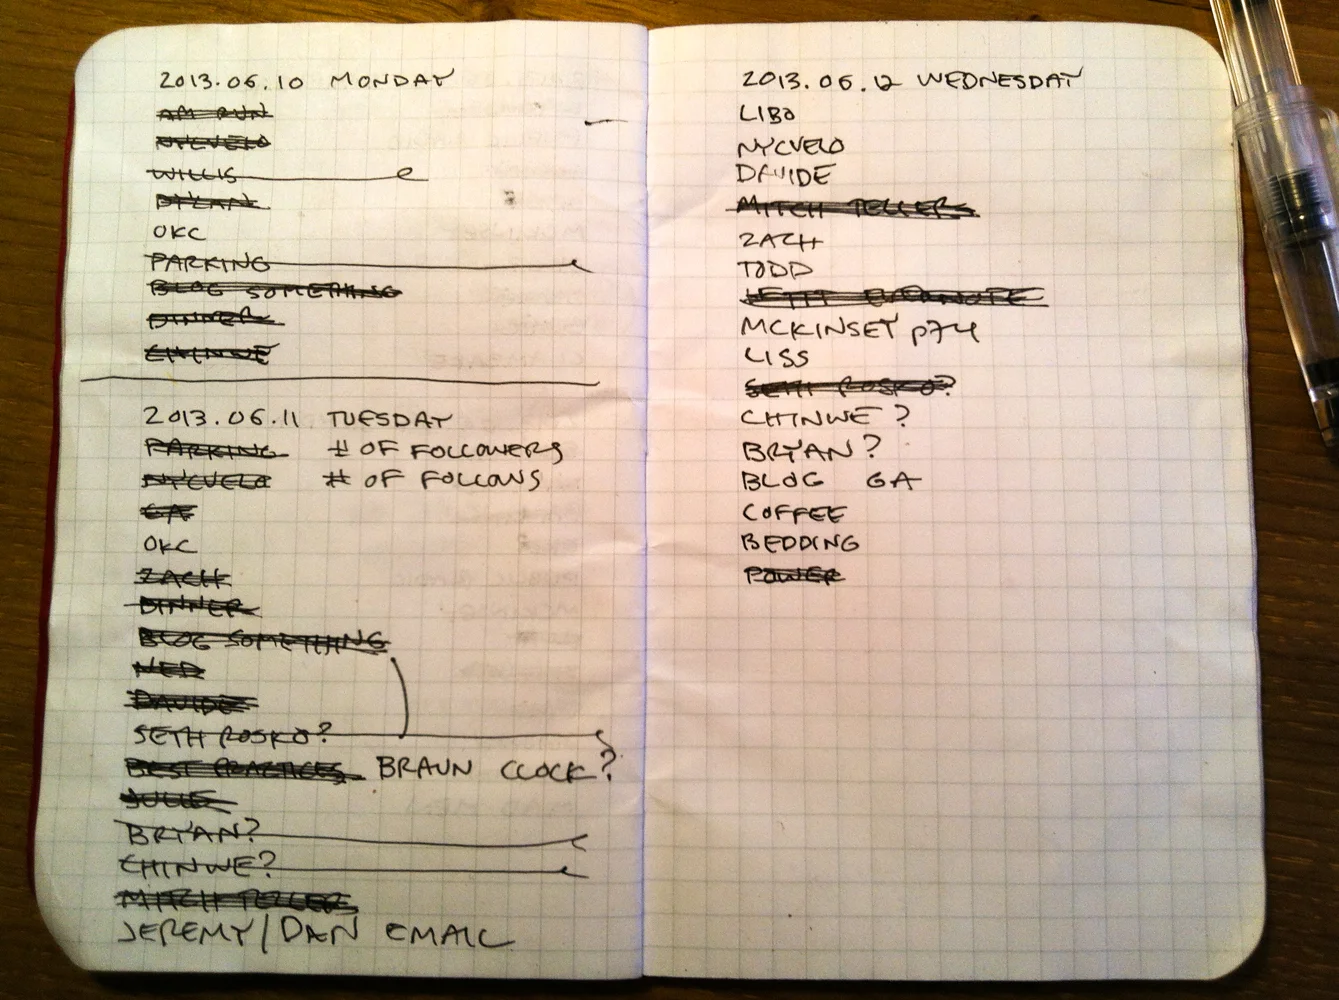 2013.06.10 MONDAY
AM RUN
NYCVELO
WILLIS
DYLAN
OKC
PARKING
BLOG SOMETHING
DINNER
CHINWE
2013.06.11 TUESDAY
PARKING # OF FOLLOWERS
NYCVELO # OF FOLLOWS
GA
OKC
ZACH
DINNER
BLOG SOMETHING
NED
DAVIDE
SETH ROSKO?
BEST PRACTICES BRAUN CLOCK?
JULIE
BRYAN?
CHINWE?
MITCH TELLER
JEREMY/DAN EMAIL
2013.06.12 WEDNESDAY
LIBO
NYCVELO
DAVIDE
MITCH TELLERS
ZACH
TODD
MCKINSEY P74
LISS
SETH ROSKO?
CHINWE?
BRYAN?
BLOG GA
COFFEE
BEDDING
POWER